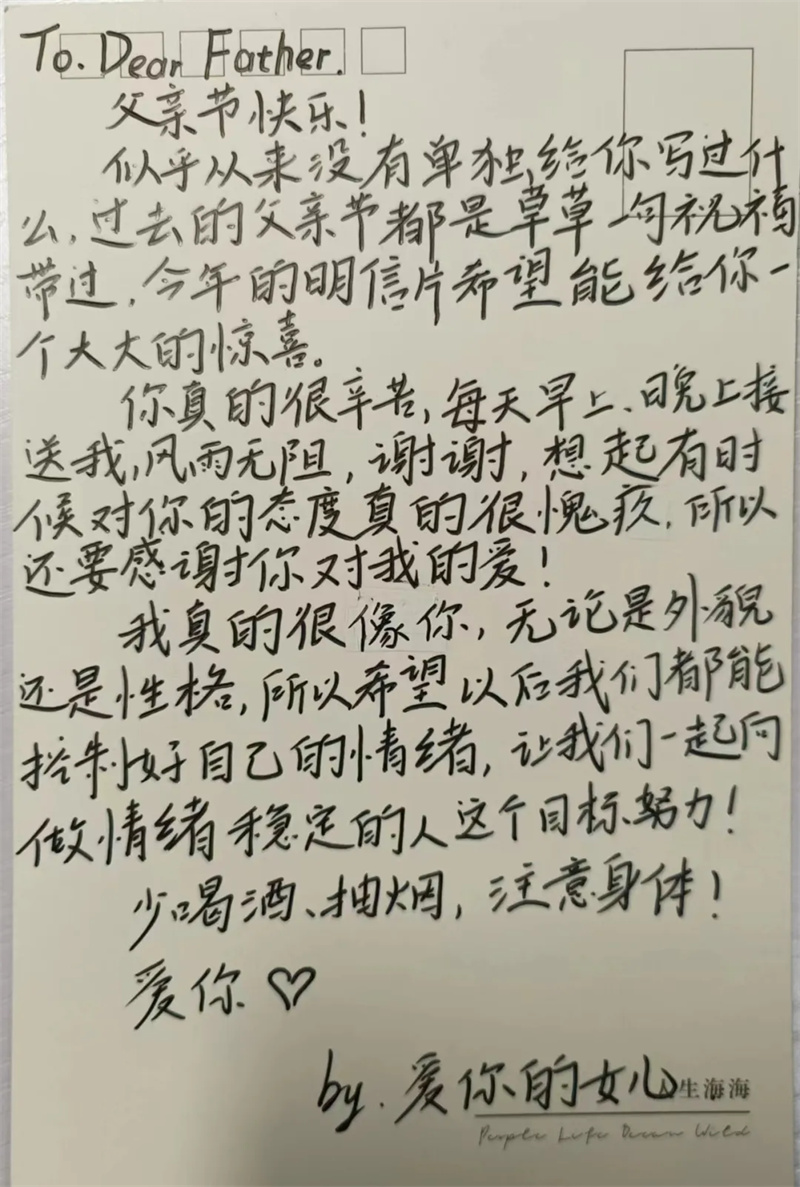 To. Dear Father.
父亲节快乐！
似乎从来没有单独给你写过什
么，过去的父亲节都是草草一句祝福
带过，今年的明信片希望能给你一
个大大的惊喜。
你真的很辛苦，每天早上、晚上接
送我，风雨无阻，谢谢，想起有时
候对你的态度真的很愧疚，所以
还要感谢你对我的爱！
我真的很像你，无论是外貌
还是性格，所以希望以后我们都能
控制好自己的情绪，让我们一起向
做情绪稳定的人这个目标努力！
少喝酒、抽烟，注意身体！
爱你♡
by. 爱你的女儿
生海海
People Life Ocean Wild